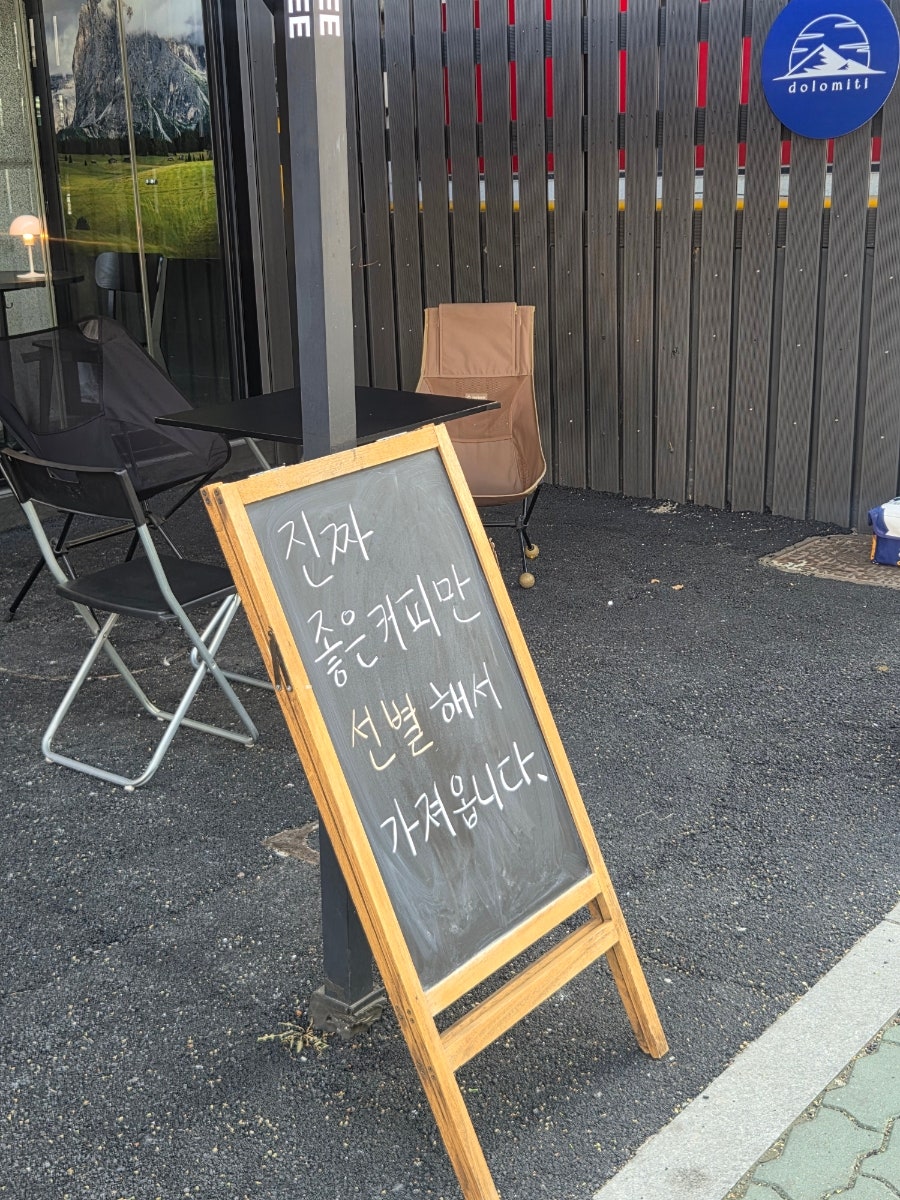 EE
EE
dolomiti
진짜
좋은 커피만
선별해서
가져옵니다.